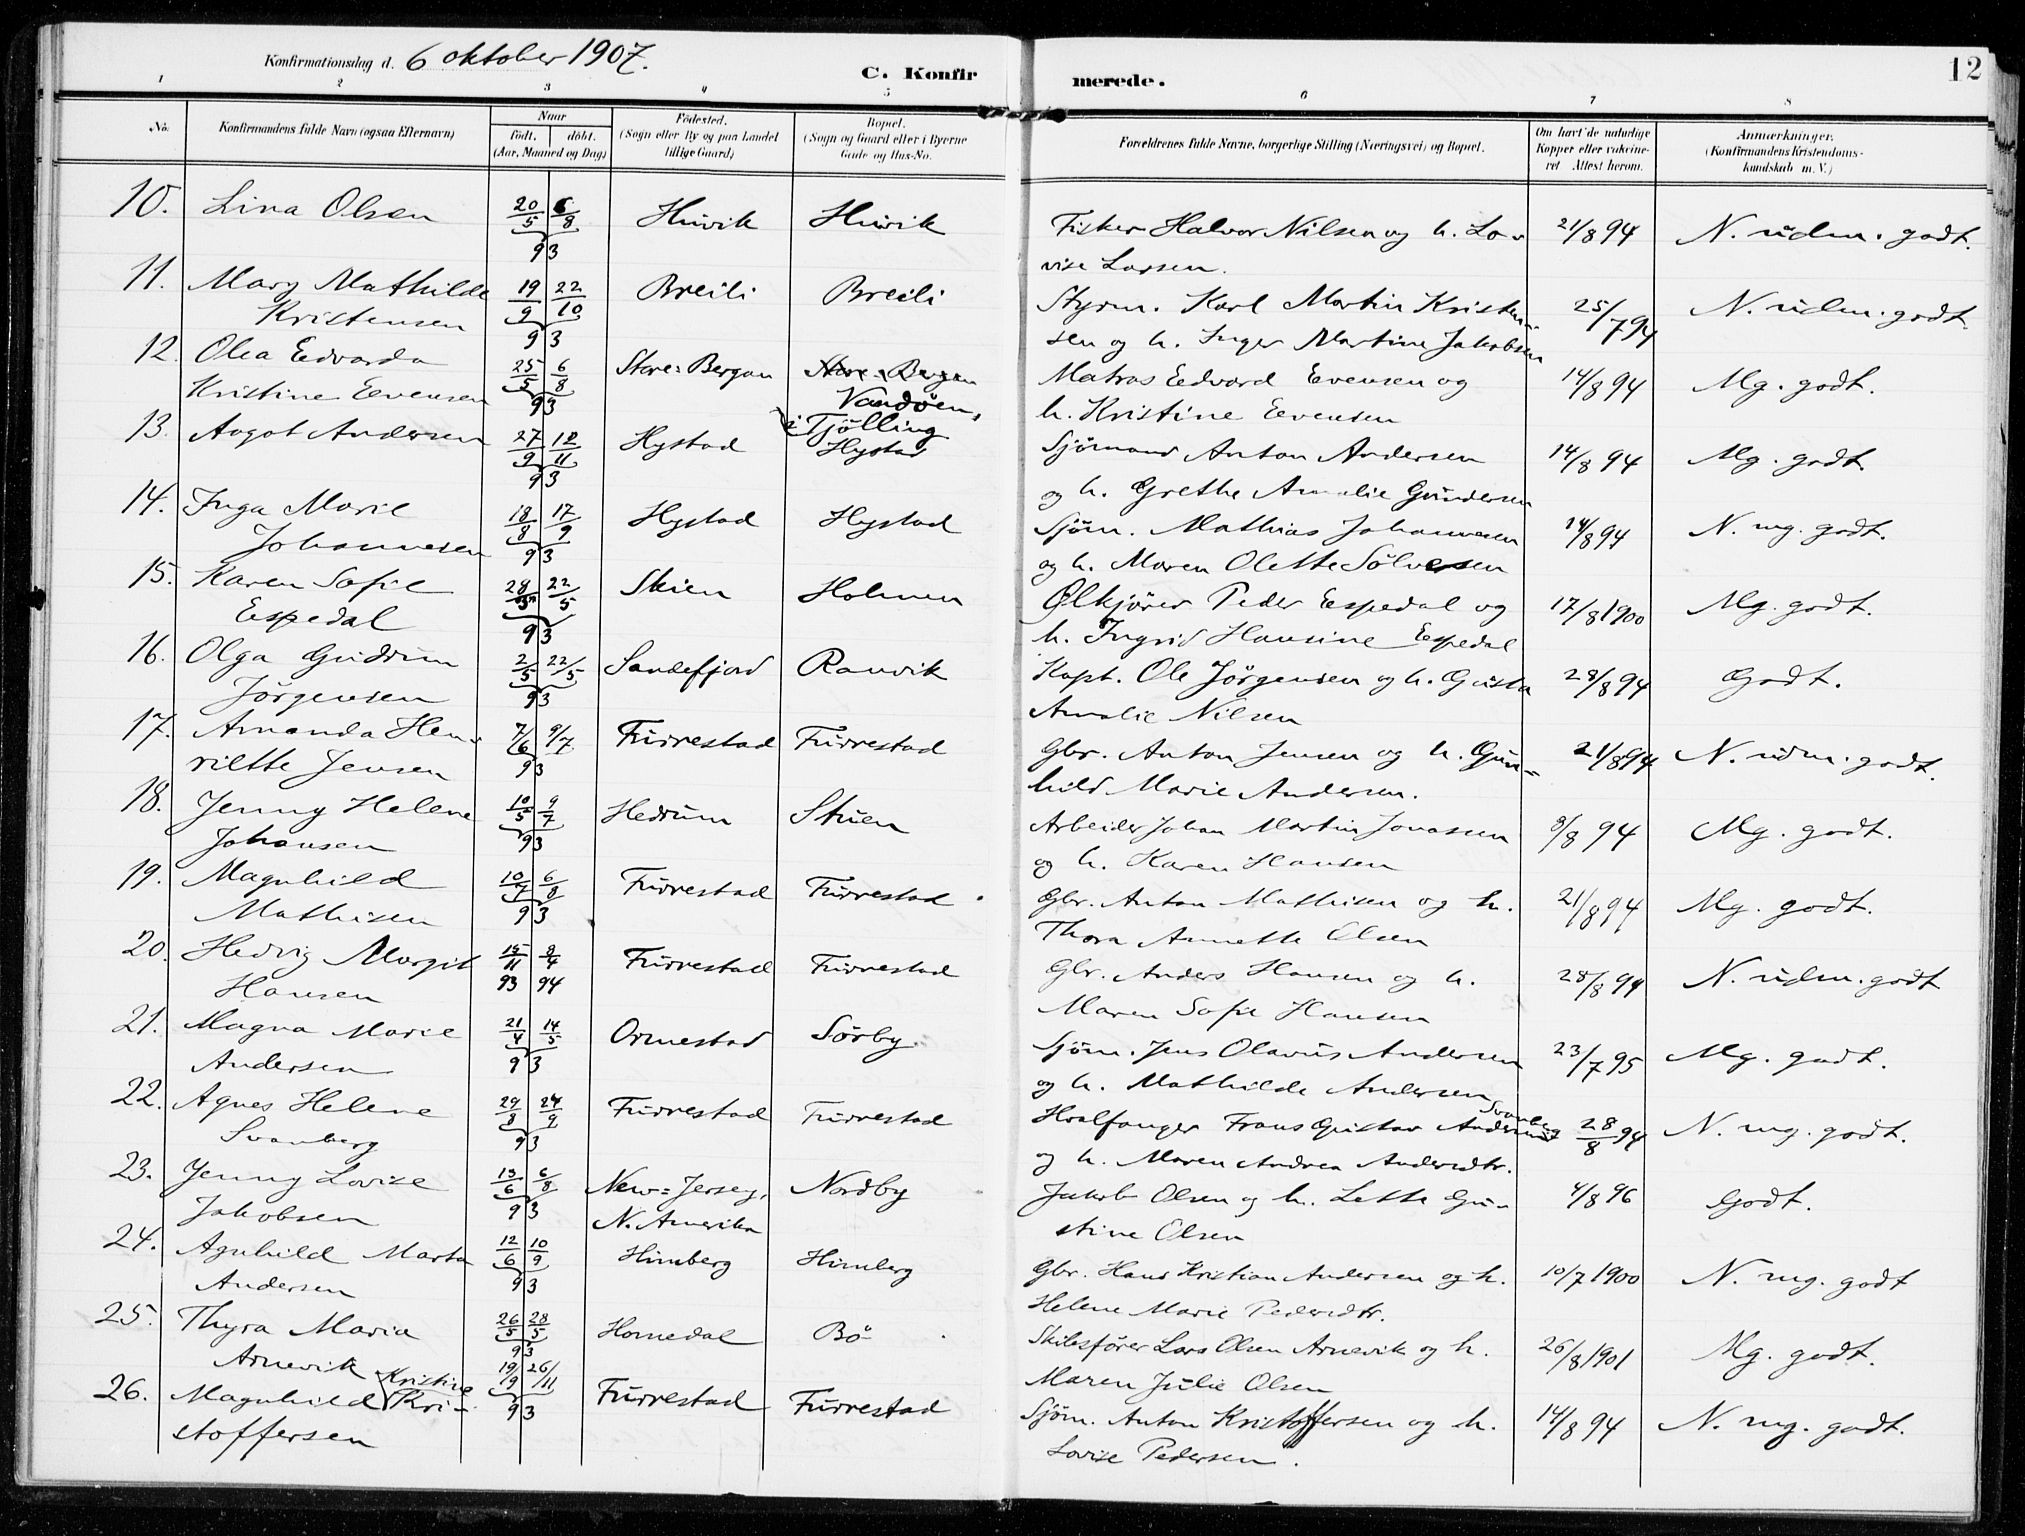 Konfirmationsdag d. 6 oktober 1907.
C. Konfirmerede.
12
1 2 3 4 5 6 7 8
No. Konfirmandens fulde Navn (ogsaa Efternavn) Naar født. døbt. (Aar, Maaned og Dag) Fødested. (Sogn eller By og paa Landet tillige Gaard) Bopæl. (Sogn og Gaard eller i Byerne Gade og Hus-No. Forældrenes fulde Navne, borgerlige Stilling (Næringsvei) og Bopæl. Om havt de naturlige Kopper eller vakcineret Attest herom. Anmærkninger. (Konfirmandens Kristendomskundskab m. V.)
10. Lina Olsen 20/5 6/8 93 Huvik Huvik Fisker Halvor Nilsen og h. Lo- 21/8 94 N. udm. godt.
vise Larsen.
11. Mary Mathilde 19/9 22/10 93 Breili Breili Styrm. Karl Martin Kristen- 25/7 94 N. udm. godt
Kristensen sen og h. Inger Martine Jakobsen
12. Olea Edvarda 25/5 6/8 93 Store=Bergan Store=Bergan Matros Edvard Evensen og 14/8 94 Mg. godt.
Kristine Evensen Vandøen, i Tjølling h. Kristine Evensen
13. Aagot Andersen 27/9 12/11 93 Hystad Hystad Sjømand Anton Andersen 14/8 94 Mg. godt.
og h. Grethe Amalie Gundersen
14. Inga Marie 18/8 17/9 93 Hystad Hystad Sjøm. Mathias Johannesen 14/8 94 N. mg. godt.
Johannesen og h. Maren Olette Sølversen
15. Karen Sofie 28/3 22/5 93 Skien Holmen Ølkjører Peder Espedal og 17/8 1900 Mg. godt.
Espedal h. Ingrid Hansine Espedal
16. Olga Gudrun 2/5 22/5 93 Sandefjord Ranvik Kapt. Ole Jørgensen og h. Gusta 28/8 94 Godt.
Jørgensen Amalie Nilsen
17. Amanda Hen- 7/6 9/7 93 Furrestad Furrestad Gbr. Anton Jensen og h. Gun- 21/8 94 N. udm. godt.
riette Jensen hild Marie Andersen.
18. Jenny Helene 10/5 9/7 93 Hedrum Stuen Arbeider Johan Martin Jonassen 3/8 94 Mg. godt.
Johansen og h. Karen Hansen
19. Magnhild 10/7 6/8 93 Furrestad Furrestad Gbr. Anton Mathisen og h. 21/8 94 Mg. godt.
Mathisen Thora Annette Olsen
20. Hedvig Margit 15/11 93 8/4 94 Furrestad Furrestad Gbr. Anders Hansen og h. 28/8 94 N. udm. godt
Hansen Maren Sofie Hansen
21. Magna Marie 21/4 14/5 93 Ormestad Sørby. Sjøm. Jens Olavus Andersen 23/7 95 Mg. godt.
Andersen og h. Mathilde Andersen
22. Agnes Helene 29/8 24/9 93 Furrestad Furrestad Hvalfanger Frans Gustav Andersen Svanberg 28/8 94 N. mg. godt.
Svanberg og h. Maren Andrea Andersdtr.
23. Jenny Lovise 13/6 6/8 93 New=Jersey, Nordby Jakob Olsen og h. Lette Gu- 4/8 96 Godt.
Jakobsen N. Amerika stine Olsen
24. Agnhild Marta 12/6 10/9 93 Himberg Himberg Gbr. Hans Kristian Andersen og h. 10/7 1900 N. mg. godt
Andersen Helene Marie Pedersdtr.
25. Thyra Maria 26/5 28/5 93 Homedal Bø Skibsfører Lars Olsen Arnevik og h. 26/8 1901 Mg. godt.
Arnevik Maren Julie Olsen
26. Magnhild Kristine Kri- 19/9 26/11 93 Furrestad Furrestad Sjøm. Anton Kristoffersen og h. 14/8 94 N. mg. godt.
stoffersen Lovise Pedersen.